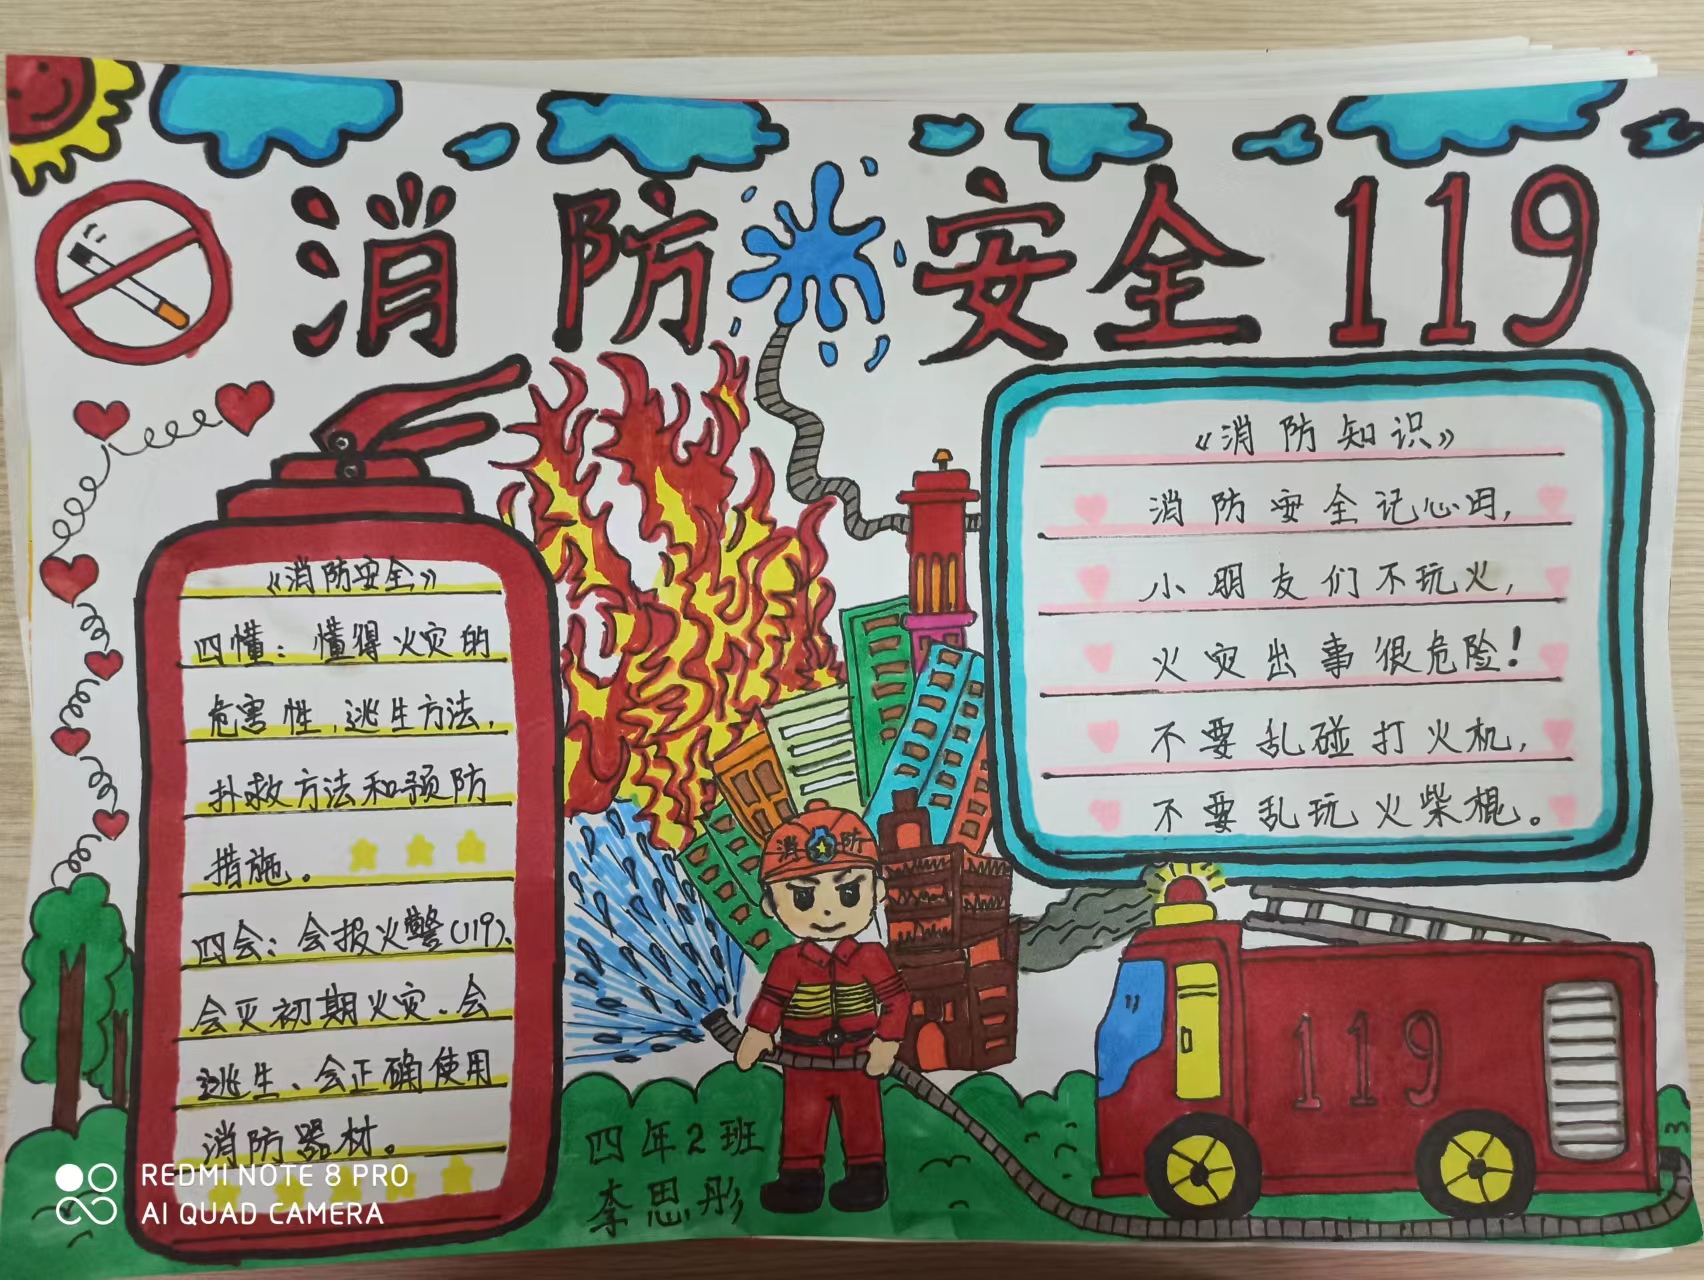 消防安全119
《消防安全》
四懂：懂得火灾的
危害性，逃生方法，
扑救方法和预防
措施。
四会：会报火警(119)、
会灭初期火灾、会
逃生、会正确使用
消防器材。
《消防知识》
消防安全记心田,
小朋友们不玩火,
火灾出事很危险!
不要乱碰打火机,
不要乱玩火柴棍。
消防
119
四年2班
李思彤
REDMI NOTE 8 PRO
AI QUAD CAMERA